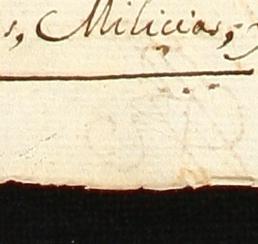 s, Milicias, y